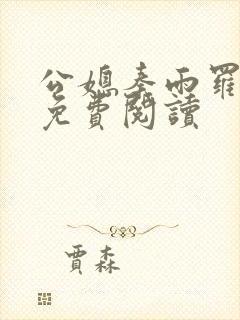 公媳秦雨羅
免費閱讀
賈森